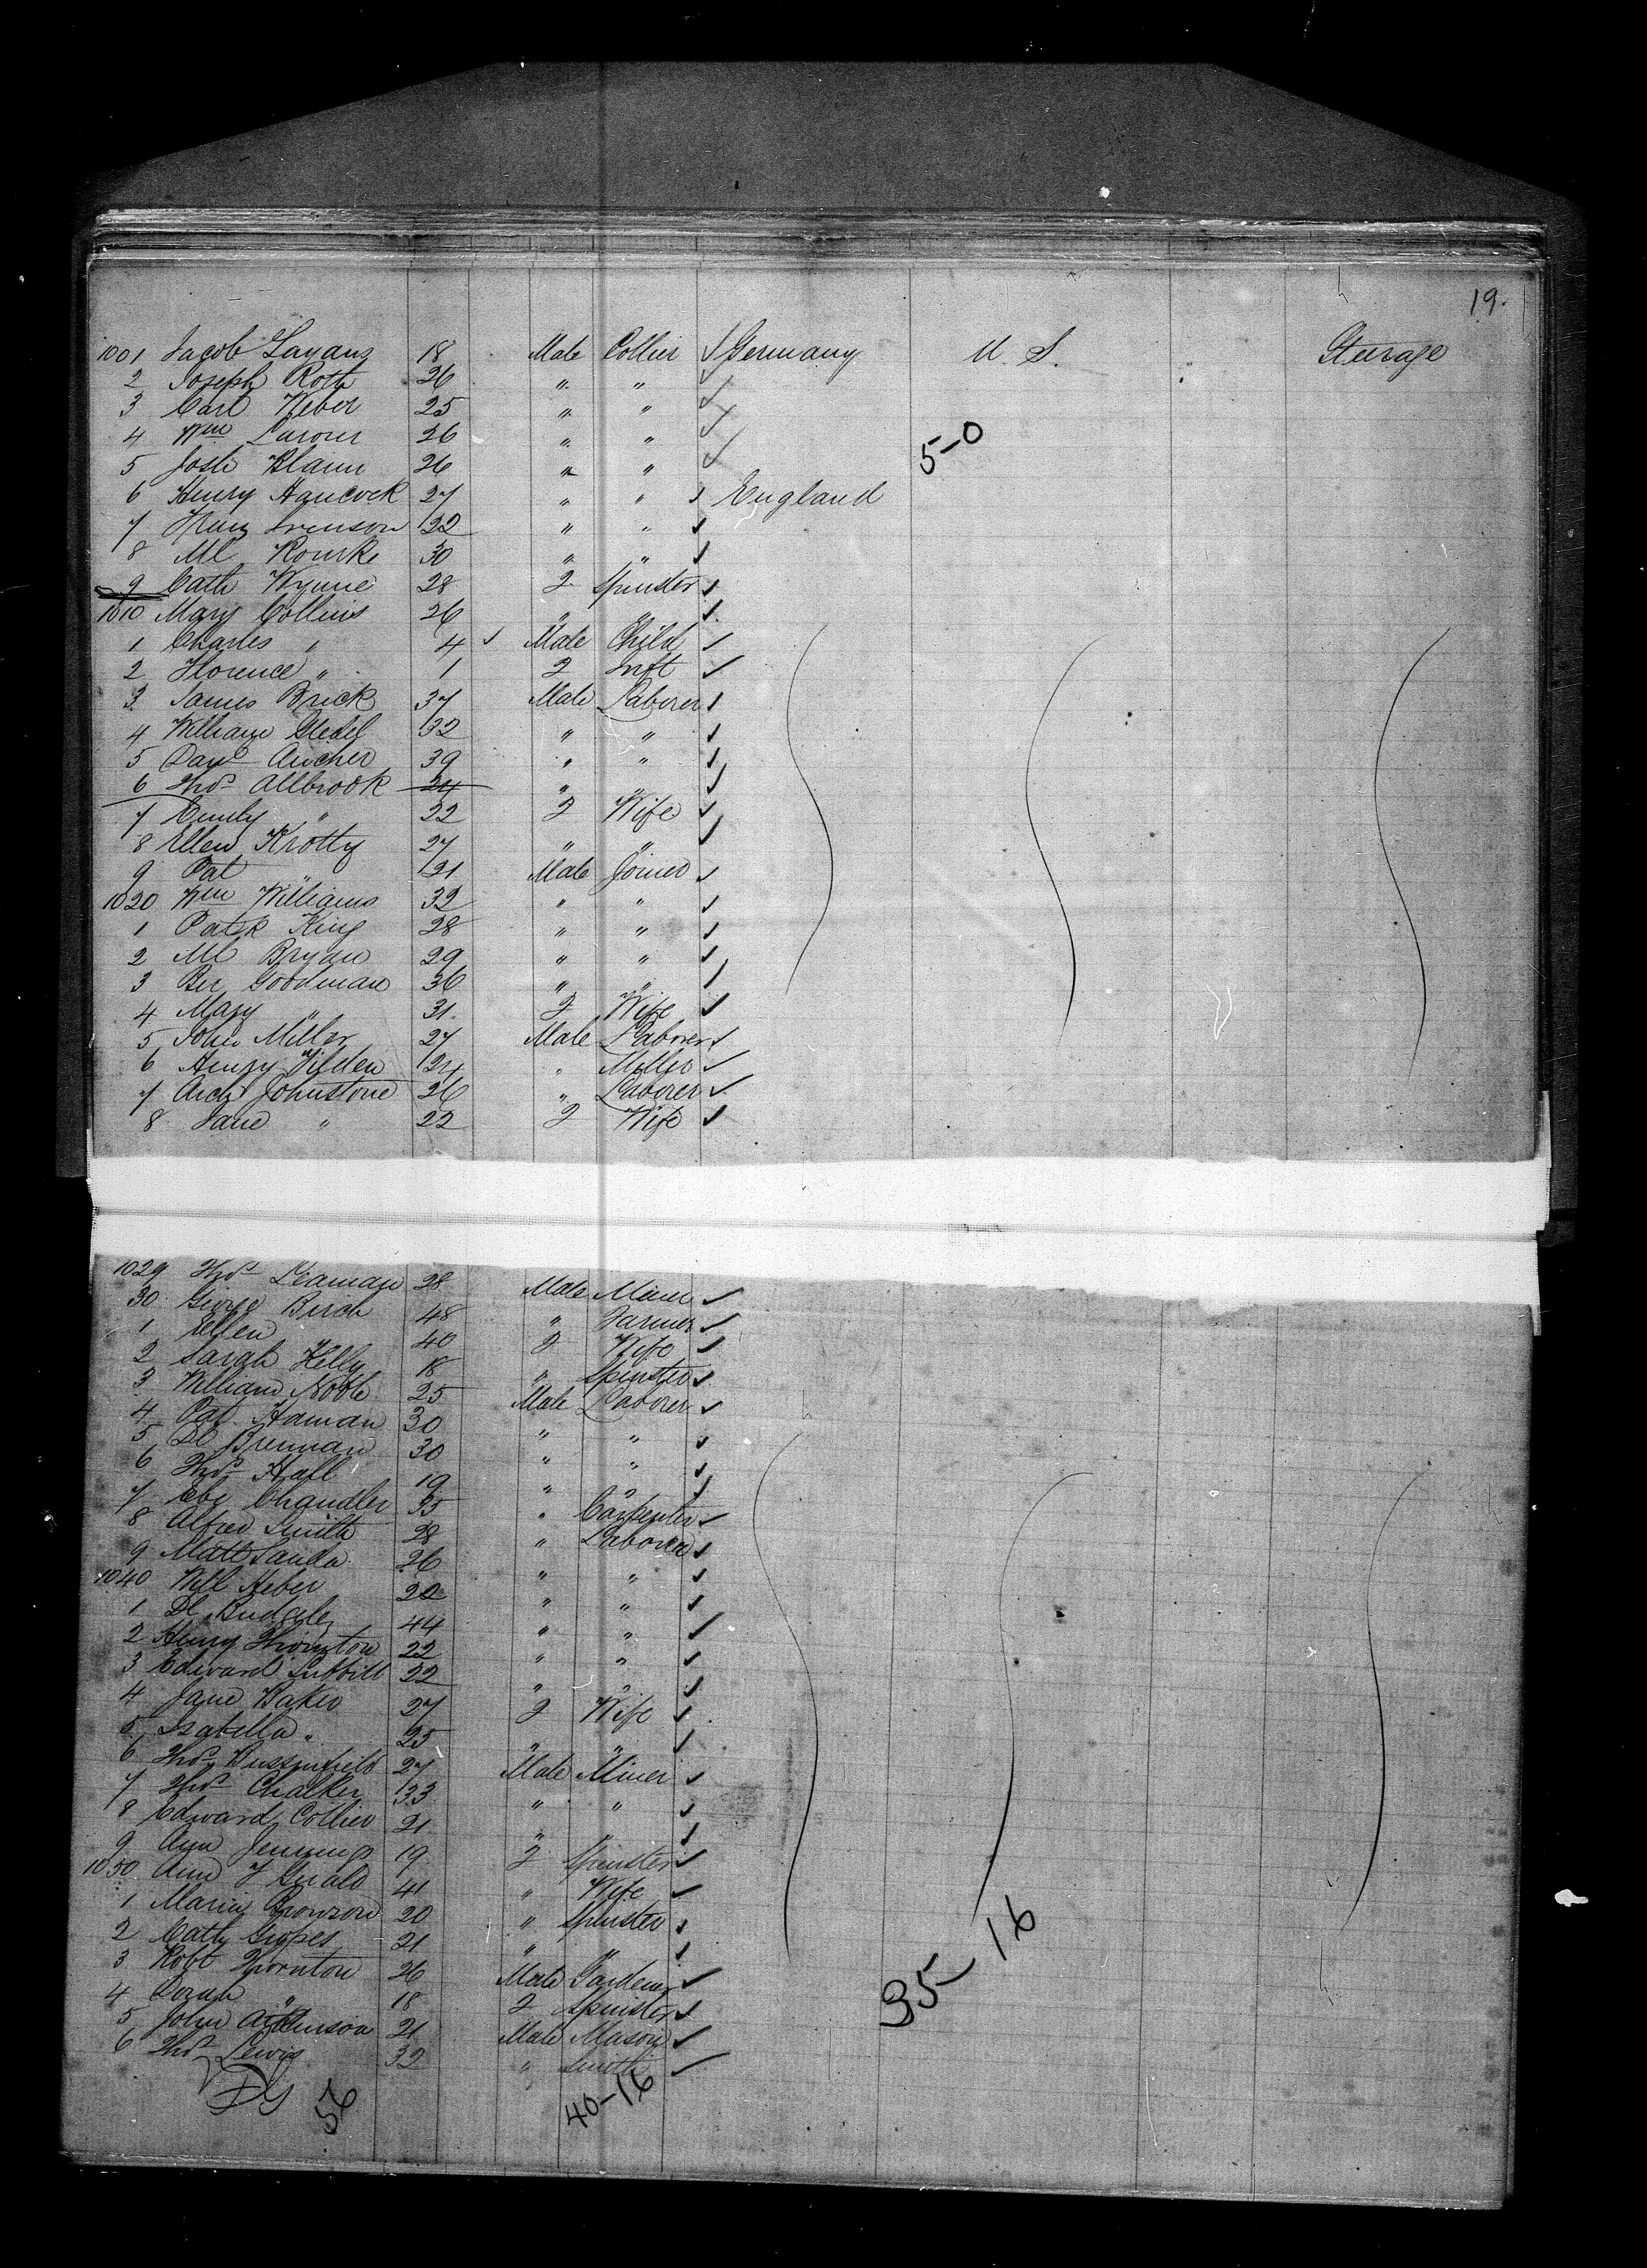 19.
1001 Jacob 18 Male Collier ✓ Germany U. S. Steerage
2 Joseph Roth 26 " " ✓
3 Carl Weber 25 " " ✓
4 Wm 26 " " ✓
5 Josh 26 " " ✓
5-0
6 Henry Hancock 27 " " ✓ England
7 22 " " ✓
8 Ml Rourke 30 " " ✓
9 Cath Wynne 28 F Spinster ✓
1010 Mary Collins 26 " " ✓
1 Charles " 4 ✓ Male Child ✓
2 Florence " 1 F Inft ✓
3 James Brick 37 Male Laborer ✓
4 William 32 " " ✓
5 Danl Archer 39 " " ✓
6 Thos Allbrook 24 " " ✓
7 Emily " 22 F Wife ✓
8 Ellen Krotty 27 " " ✓
9 Pat " 21 Male Joiner ✓
1020 Wm Williams 32 " " ✓
1 Patk King 28 " " ✓
2 Ml Bryan 29 " " ✓
3 Goodman 36 " " ✓
4 Mary " 31 F Wife ✓
5 John Miller 27 Male Laborer ✓
6 Henry Tilden 24 " Miller ✓
7 Archd Johnstone 26 " Laborer ✓
8 Jane " 22 F Wife ✓
1029 Thos Leaman 28 Male Miner ✓
30 George Birch 48 " Farmer ✓
1 Ellen " 40 F Wife ✓
2 Sarah Kelly 18 " Spinster ✓
3 William Noble 25 Male Laborer ✓
4 Pat Haman 30 " " ✓
5 Dl Brennan 30 " " ✓
6 Thos Hall 19 " " ✓
7 Ebe Chandler 35 " Carpenter ✓
8 Alfred Smith 28 " Laborer ✓
9 Matt 26 " " ✓
1040 Will Heber 22 " " ✓
1 Dl 44 " " ✓
2 Henry Thornton 22 " " ✓
3 Edward 22 " " ✓
4 Jane Baker 27 F Wife ✓
5 Isabella " 25 " " ✓
6 Thos 27 Male Miner ✓
7 Thos Chalker 33 " " ✓
8 Edward Collier 21 " " ✓
9 Ann Jennings 19 F Spinster ✓
1050 Ann 41 " Wife ✓
1 Maria 20 " Spinster ✓
2 Cath 21 " " ✓
3 Robt Thornton 26 Male Gardener ✓
35-16
4 " 18 F Spinster ✓
5 John Atkinson 21 Male Mason ✓
6 Thos Lewis 32 " Smith ✓
56 40-16